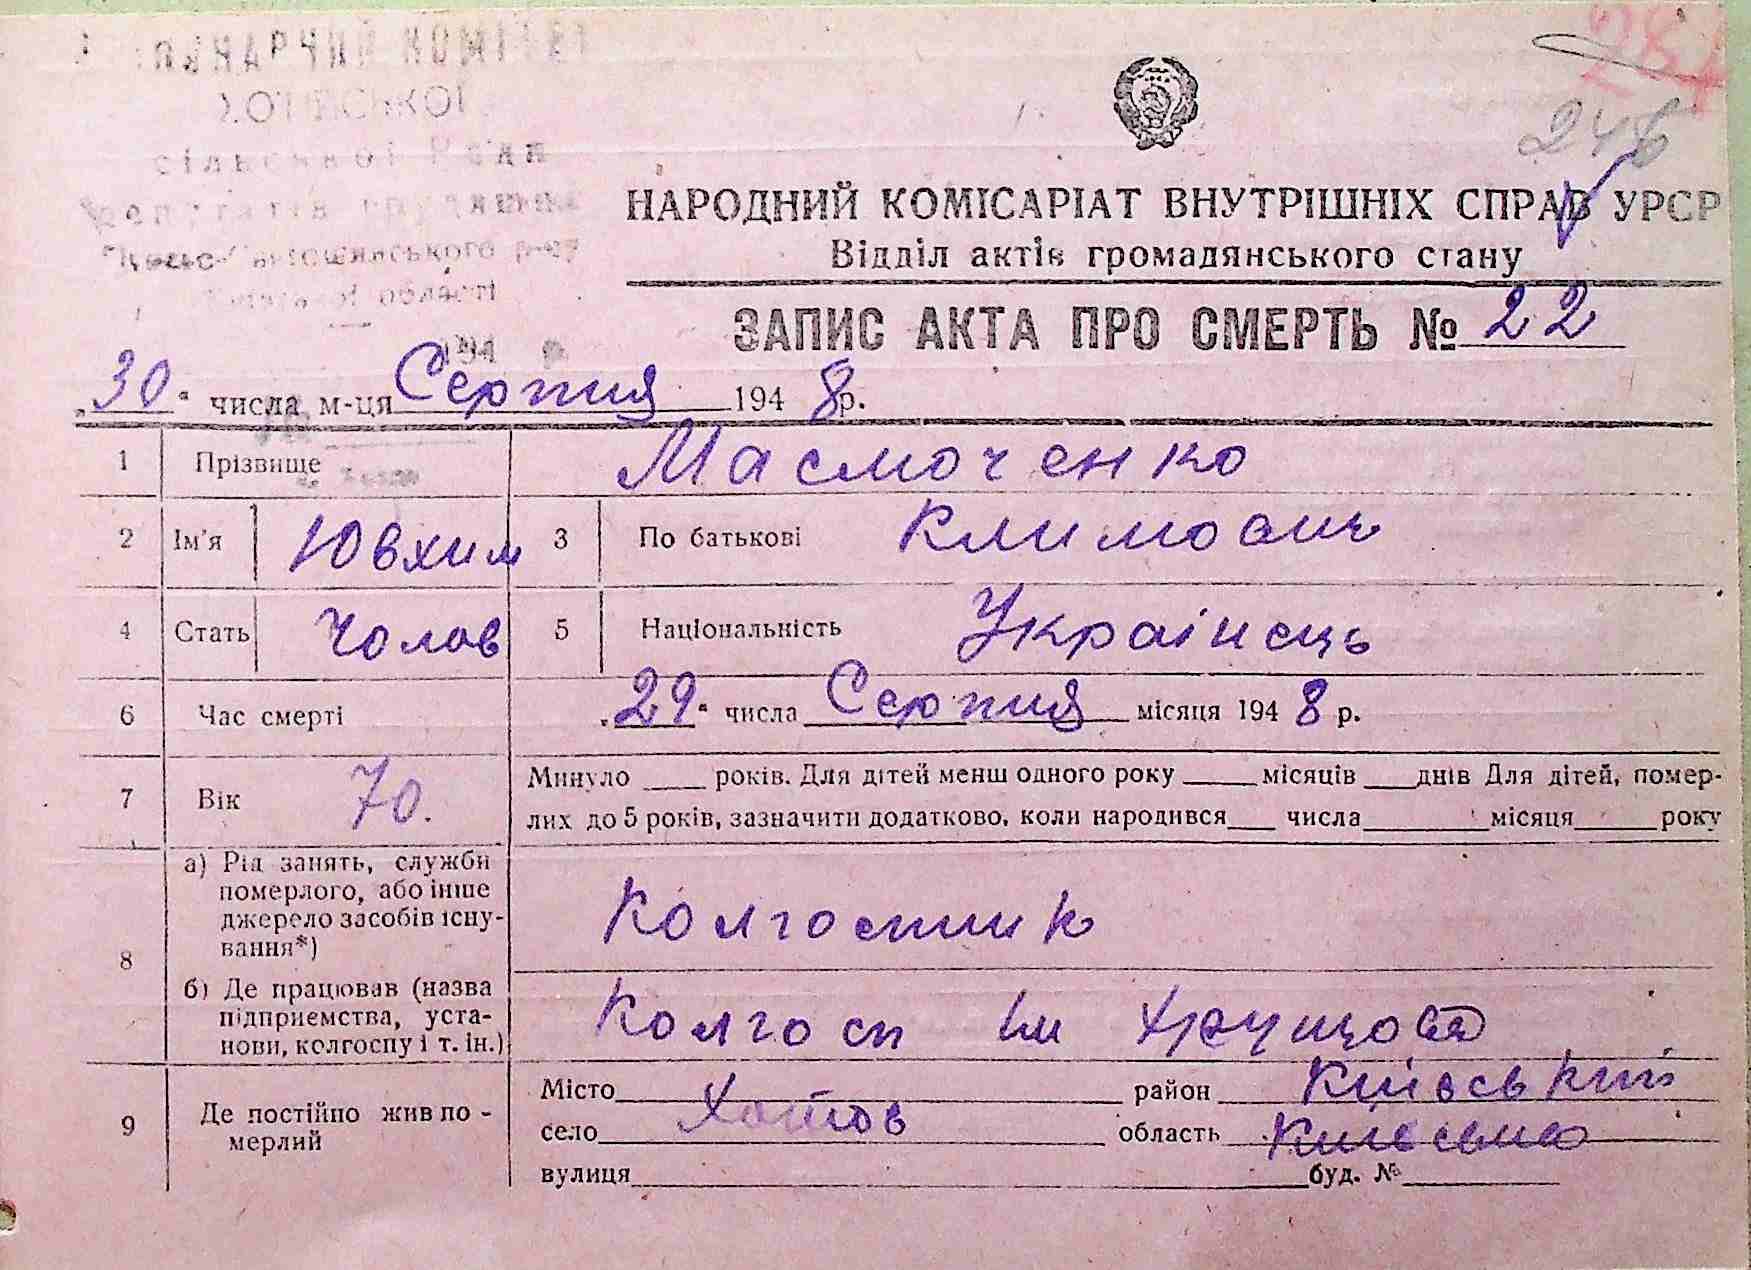 284
246
ХОТІВСЬКОЇ
сільської Ради
депутатів трудящих
області
194
НАРОДНИЙ КОМІСАРІАТ ВНУТРІШНІХ СПРАВ УРСР
Відділ актів громадянського стану
ЗАПИС АКТА ПРО СМЕРТЬ № 22
„30“ числа м-ця Серпня 1948 р.
1 Прізвище Масмоченко
2 Ім'я Ювхим 3 По батькові Климович
4 Стать Чолов 5 Національність Українець
6 Час смерті „29“ числа Серпня місяця 1948 р.
7 Вік 70. Минуло ____ років. Для дітей менш одного року ____ місяців ____ днів Для дітей, помер-
лих до 5 років, зазначити додатково, коли народився ____ числа ____ місяця ____ року
8 а) Рід занять, служби
померлого, або інше
джерело засобів існу-
вання*) Колгоспник
б) Де працював (назва
підприємства, уста-
нови, колгоспу і т. ін.) Колгосп ім Хрущова
9 Де постійно жив по-
мерлий
Місто ____ район Київський
село Хотов область Київська
вулиця ____ буд. № ____